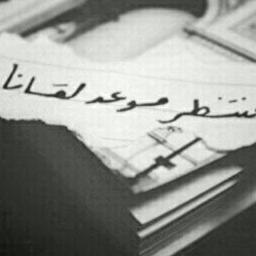 ننتظر موعد لقانا